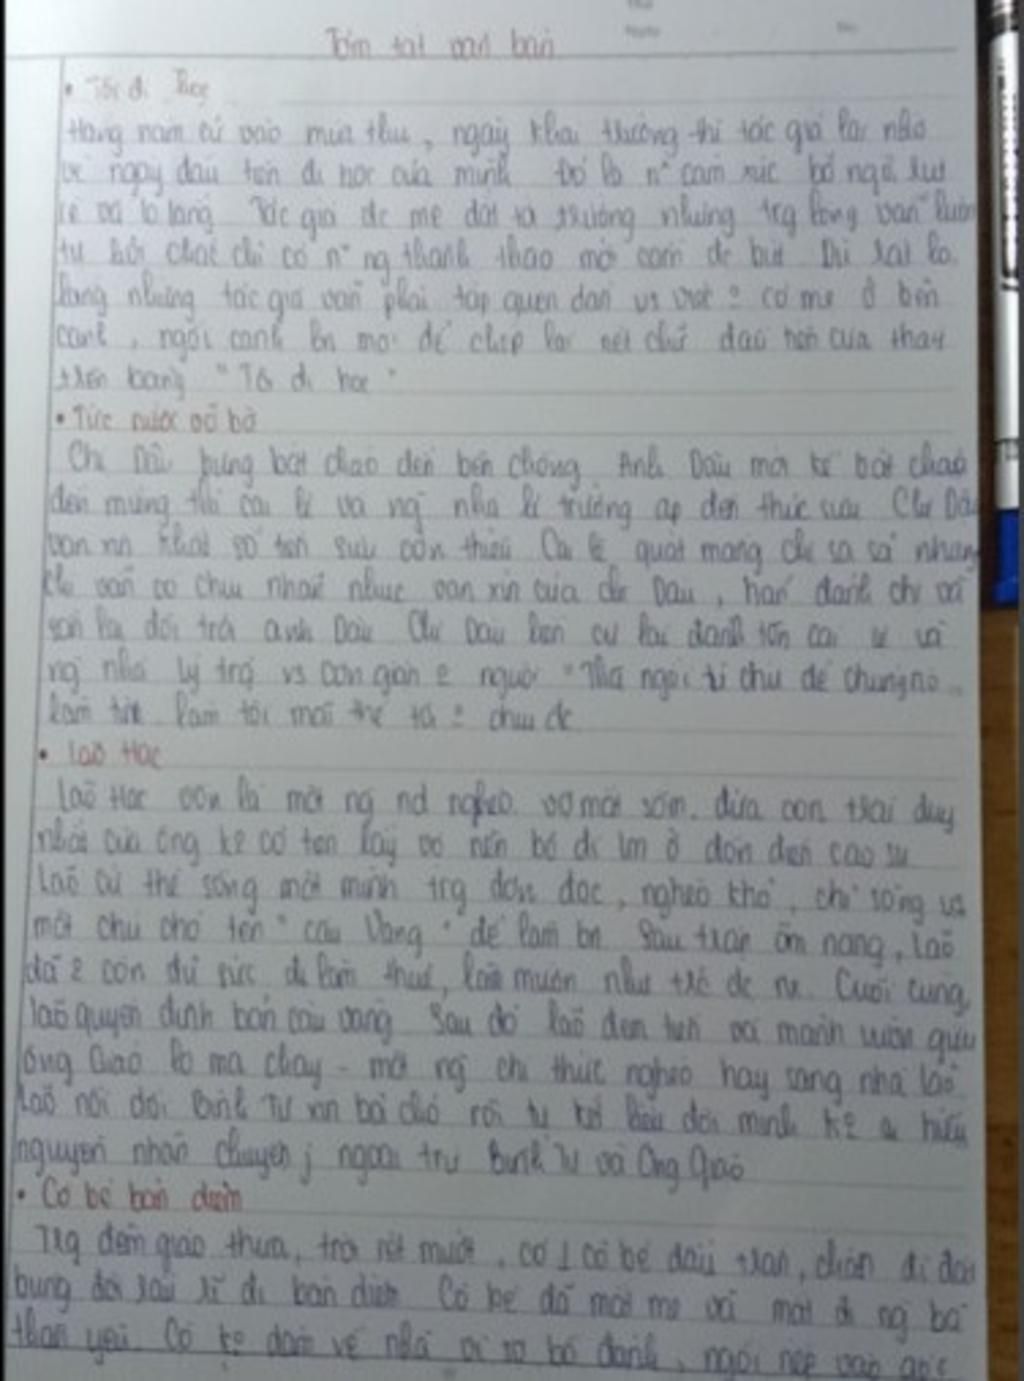 Tóm tắt văn bản
• Tôi đi học
Hàng năm cứ vào mùa thu, ngày khai trường thì tác giả lại nhớ
về ngày đầu tiên đi học của mình Đó là cảm xúc bỡ ngỡ
và lo lắng Tác giả mẹ dắt trường nhưng trg lòng vẫn luôn
tự hỏi chắc chỉ có ng thành thạo mới cầm bút Dù rất lo
lắng nhưng tác giả vẫn phải tập quen dần vs có mẹ ở bên
cạnh, ngồi cạnh để chép lại nét chữ đầu tiên của thầy
trên bảng "Tôi đi học"
• Tức nước vỡ bờ
Chị Dậu bưng bát cháo đến bên chồng Anh Dậu mới kề bát cháo
đến miệng thì cai lệ và ng nhà lí trưởng ập đến thúc sưu Chị Dậu
van xin khất số tiền sưu còn thiếu Cai lệ quát mắng chị sa sả nhưng
vẫn van xin của chị Dậu, hắn đánh chị và
trói anh Dậu Chị Dậu đánh cai lệ và
ng nhà lý trg vs người "Thà ngồi tù chứ để chúng nó
làm tình làm tội mãi thế tôi chịu đc
• Lão Hạc
Lão Hạc vốn là một ng nd nghèo. vợ mất sớm. đứa con trai duy
nhất của ông k° có tiền lấy vợ nên bỏ đi lm ở đồn điền cao su
Lão cứ thế sống một mình trg đơn độc, nghèo khổ, chỉ sống vs
một chú chó tên "cậu Vàng" để làm bn Sau trận ốm nặng, lão
đã còn đủ sức đi làm thuê, làm mướn như trc đc nx. Cuối cùng,
lão quyết định bán cậu vàng Sau đó lão đem tiền và mảnh vườn gửi
ông Giáo lo ma chay - một ng chi thức nghèo hay sang nhà lão
lão nói dối Binh Tư xin bả chó rồi tự kết liễu đời mình k° ai hiểu
nguyên nhân chuyện j ngoài trừ Binh Tư và Ông Giáo
• Cô bé bán diêm
Trg đêm giao thừa, trời rét mướt, có 1 cô bé đầu trần, chân đi đất
bụng đói đi bán diêm Cô bé đã mất mẹ và mất đi ng bà
thân yêu. Cô k° dám về nhà vì sợ bố đánh, ngồi nép vào góc